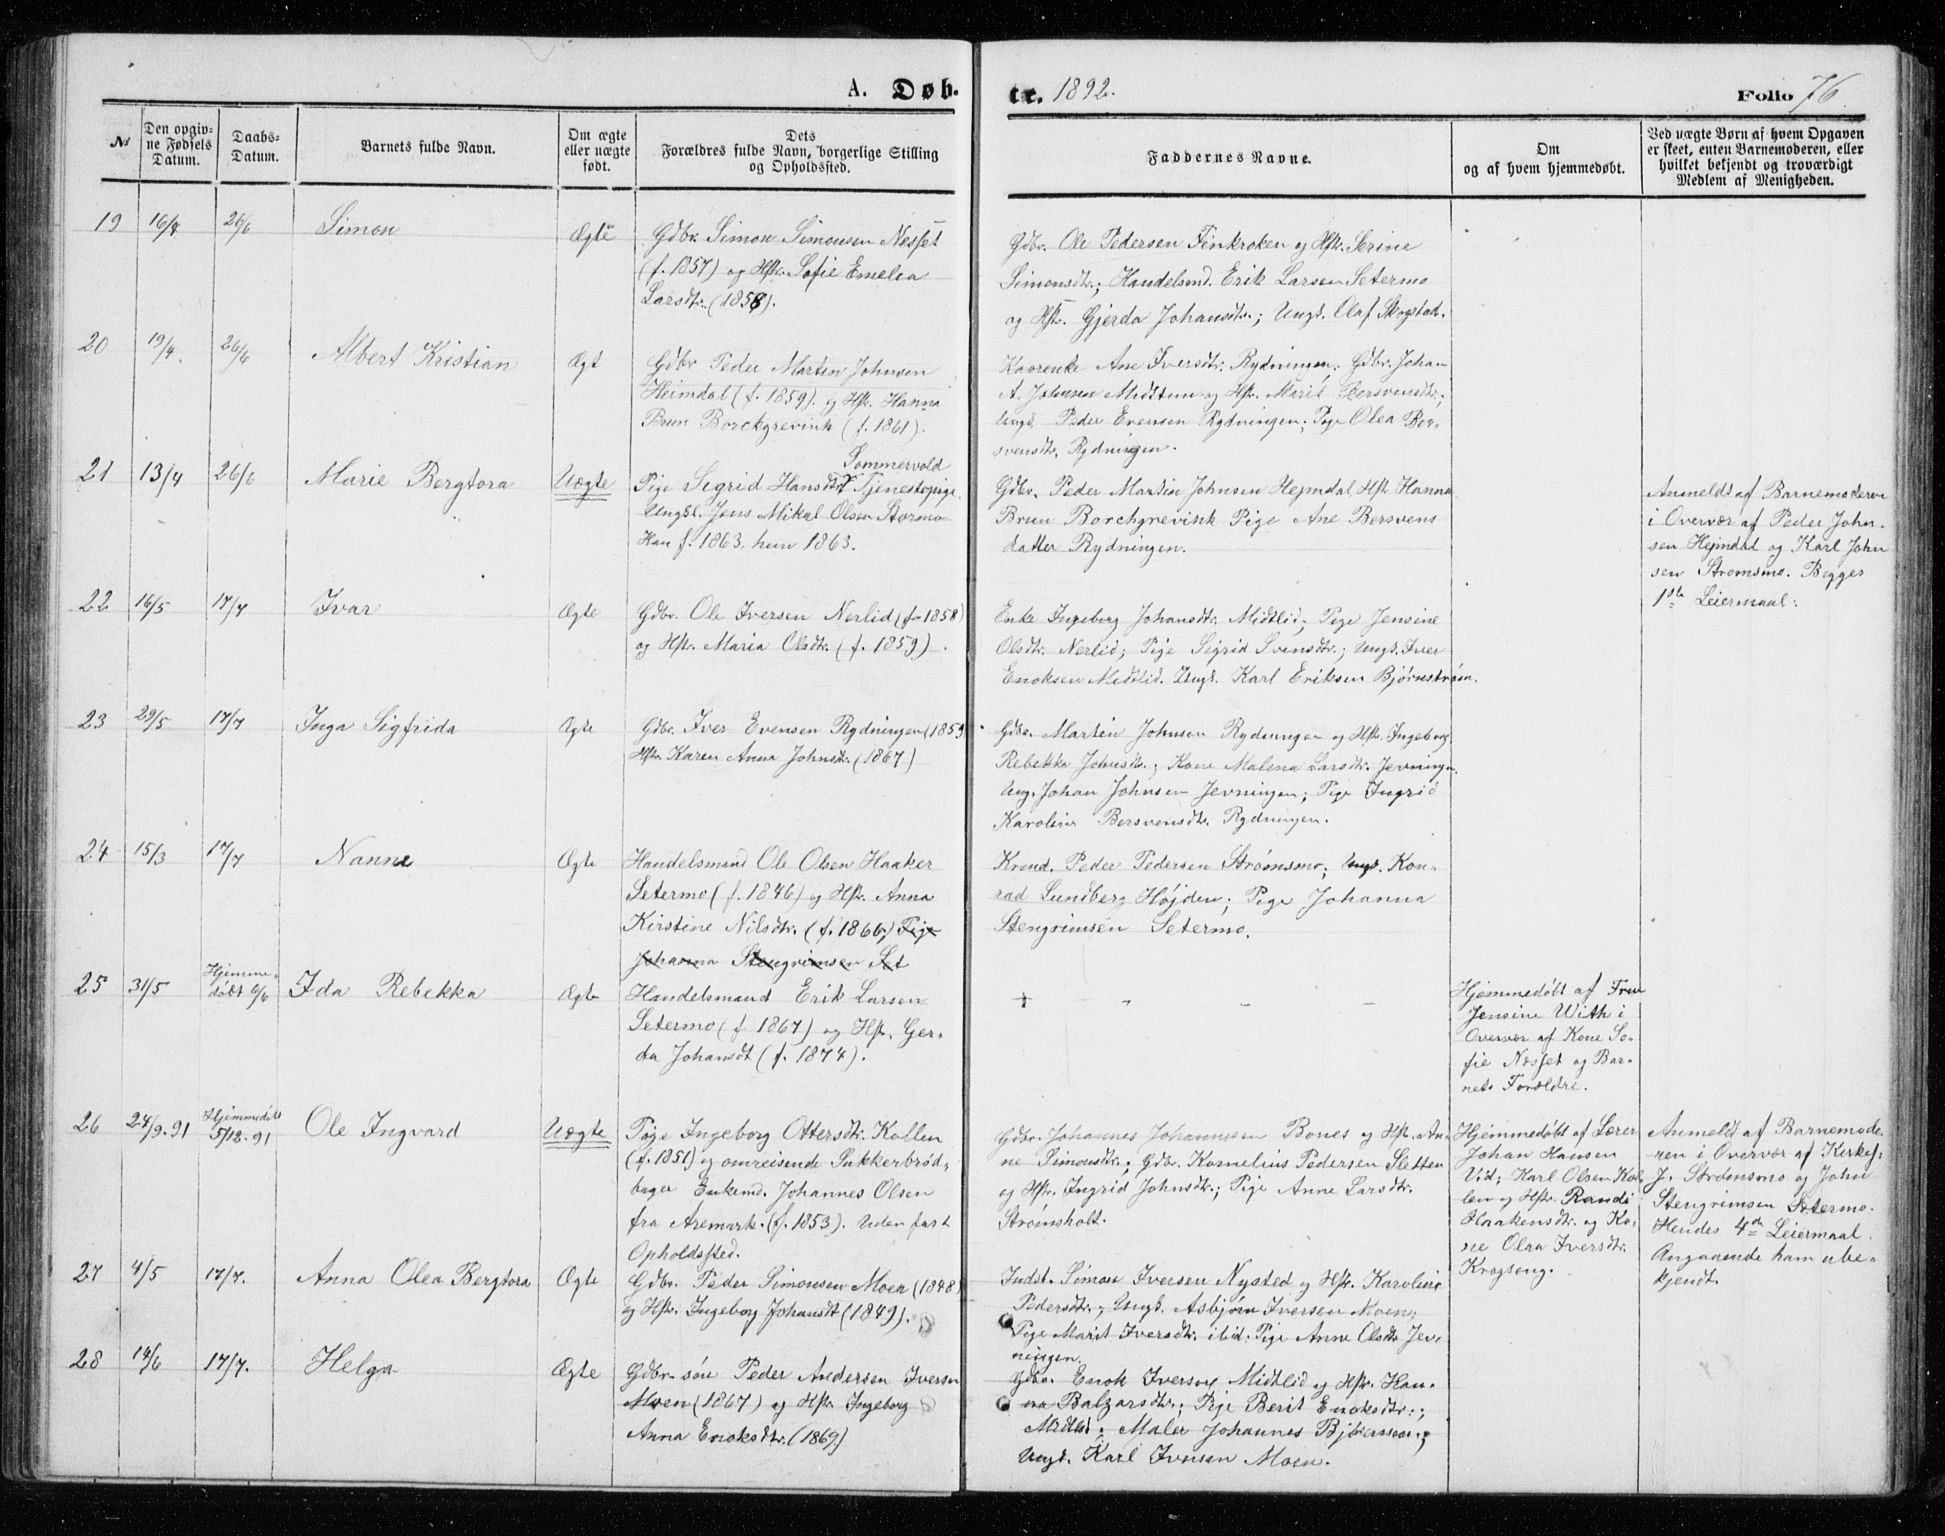 A. Døb- te. 1892. Folio 76
№
Den opgiv-
ne Fødsels
Datum.
Daabs-
Datum.
Barnets fulde Navn.
Om ægte
eller uægte
født.
Dets
Forældres fulde Navn, borgerlige Stilling
og Opholdssted.
Faddernes Navne.
Om
og af hvem hjemmedøbt.
Ved uægte Børn af hvem Opgaven
er skeet, enten Barnemoderen, eller
hvilket bekjendt og troværdigt
Medlem af Menigheden.
19 16/4 26/6 Simon Ægte
Gdbr. Simon Simonsen Nesset
(f. 1857) og Hstr. Sofie Emelea
Larsdtr. (1858).
Gdbr. Ole Pedersen Finkroken og Hstr. Serine
Simonsdtr.; Handelsmd. Erik Larsen Setermo
og Hstr. Gjerda Johansdtr.; Ungk. Olaf Skogstad.
20 19/4. 26/6 Albert Kristian Ægt
Gdbr Peder Martin Johnsen
Heimdal (f. 1859). og Hstr. Hanna
Brun Borckgrevink (f. 1861).
Kaarenke Ane Iversdtr. Rydningen; Gdbr. Johan
A. Johnsen Midttun og Hstr. Marit Bersvensdtr.;
Ungk. Peder Evensen Rydningen; Pige Olea Ber-
svensdtr. Rydningen.
21 13/4 26/6 Marie Bergtora Uægte
Sommervold
Pige Sigrid Hansdtr Tjenestepige
Ungkl. Jens Mikal Olsen Stormo
Han f. 1863. hun 1863.
Gdbr. Peder Martin Johnsen Hejmdal, Hstr Hanna
Brun Borchgrevink Pige Ane Bersvens
datter Rydningen.
Anmeldt af Barnemoderen
i Overvær af Peder John-
sen Hejmdal og Karl John
sen Strømsmo. Begges
1ste Leiermaal.
22 16/5 17/7 Ivar Ægte
Gdbr. Ole Iversen Nerlid (f. 1858)
og Hstr. Maria Olsdtr. (f. 1859).
Enke Ingeborg Johansdtr. Midtlid; Pige Jensine
Olsdtr. Nerlid; Pige Sigrid Svensdtr.; Ungk. Iver
Enoksen Midtlid. Ungk. Karl Eriksen Bjørnstrøm.
23 29/5 17/7 Inga Sigfrida Ægte
Gdbr. Iver Evensen Rydningen (1859
Hstr. Karen Anna Johnsdtr. (1867)
Gdbr. Martin Johnsen Rydningen og Hstr. Ingeborg
Rebekka Johnsdtr.; Kone Malena Larsdtr. Jevningen.
Ung. Johan Johnsen Jevningen; Pige Ingrid
Karoline Bersvensdtr. Rydningen.
24 15/3 17/7 Nanne Ægte
Handelsmand Ole Olsen Haaker
Setermo (f. 1846) og Hstr. Anna
Kirstine Nilsdtr. (f. 1866) Pige
Johanna Stengrimsen Set
Peder Pedersen Strømsmo; Ungk. Kon-
rad Lundberg Højden; Pige Johanna
Stengrimsen Setermo.
25 31/5 Hjemme-
døbt 6/6 Ida Rebekka Ægte
Handelsmand Erik Larsen
Setermo (f. 1867) og Hstr. Ger-
da Johansdt (f. 1874).
+ " - -
Hjemmedøbt af Frue
Jensine With i
Overvær af Kone So-
fie Næsset og Bar-
nets Forældre.
26 24/9.91 Hjemmedøbt
5/12.91 Ole Ingvard Uægte
Pige Ingeborg Ottersdtr. Kollen
(f. 1851) og omreisende Sukkerbrød-
bager Enkemd. Johannes Olsen
fra Aremark. (f. 1853). Uden fast
Opholdssted.
Gdbr. Johannes Johannesen Bones og Hstr. An-
ne Simonsdtr.; Gdbr. Kornelius Pedersen Sletten
og Hstr. Ingrid Johnsdtr.; Pige Anne Larsdtr.
Strømsholt.
Hjemmedøbt af Lærer
Johan Hansen
Vid; Karl Olsen Kol-
len og Hstr. Randi
Haakensdtr. og Ko-
ne Olea Iversdtr.
Krogseng.
Anmeldt af Barnemode-
ren i Overvær af Kirkesj.
J. Strømsmo og John
Stengrimsen Setermo.
Hendes 4de Leiermaal.
Angaaende ham ube-
kjendt.
27 4/5 17/7. Anna Olea Bergtora Ægte
Gdbr. Peder Simonsen Moen (1848)
og Hstr. Ingeborg Johansdt (1849).
Indst. Simon Iversen Nysted og Hstr. Karoline
Pedersdtr.; Ungk. Asbjørn Iversen Moen,
Pige Marit Iversdtr. ibid. Pige Anne Olsdtr Jev-
ningen.
28 14/6 17/7. Helga Ægte
Gdbr. søn Peder Andersen Iversen
Moen (1867) og Hstr Ingeborg
Anna Enoksdtr. (1869.)
Gdbr. Enok Iversen Midtlid og Hstr. Han-
na Balzarsdtr.; Pige Berit Enoksdtr.;
Midtlid; Maler Johannes Bjørnsen;
Ungk. Karl Iversen Moen.